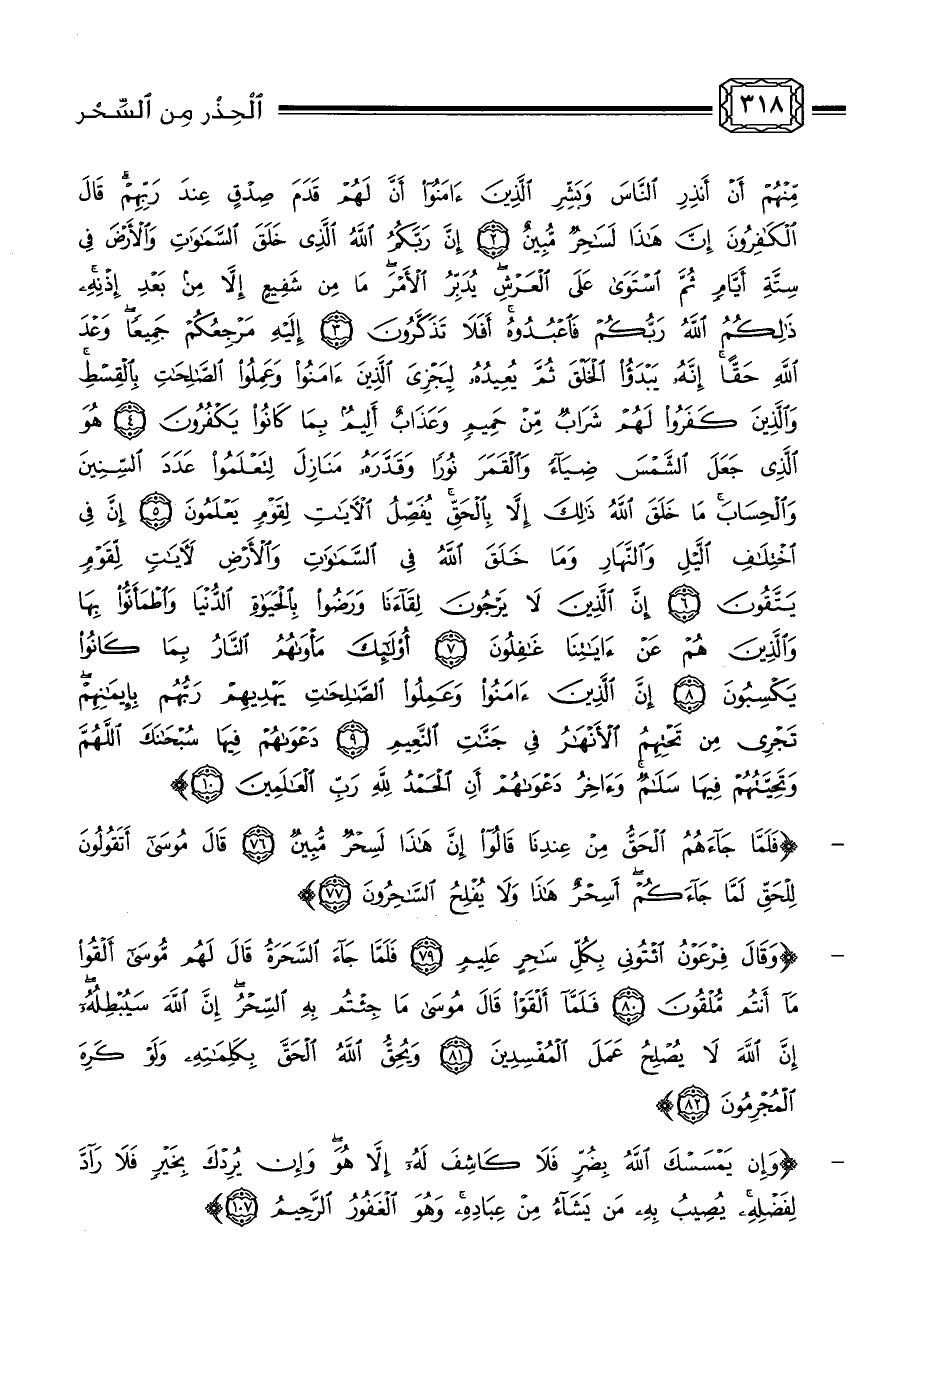 ٣١٨ الْحِذْر مِن السِّحْر
مِّنْهُمْ أَنْ أَنذِرِ النَّاسَ وَبَشِّرِ الَّذِينَ ءَامَنُوٓا أَنَّ لَهُمْ قَدَمَ صِدْقٍ عِندَ رَبِّهِمْ ۗ قَالَ
الْكَـٰفِرُونَ إِنَّ هَـٰذَا لَسَـٰحِرٌ مُّبِينٌ ﴿٢﴾ إِنَّ رَبَّكُمُ اللَّهُ الَّذِى خَلَقَ السَّمَـٰوَٰتِ وَالْأَرْضَ فِى
سِتَّةِ أَيَّامٍ ثُمَّ اسْتَوَىٰ عَلَى الْعَرْشِ ۖ يُدَبِّرُ الْأَمْرَ ۖ مَا مِن شَفِيعٍ إِلَّا مِنۢ بَعْدِ إِذْنِهِۦ ۚ
ذَٰلِكُمُ اللَّهُ رَبُّكُمْ فَاعْبُدُوهُ ۚ أَفَلَا تَذَكَّرُونَ ﴿٣﴾ إِلَيْهِ مَرْجِعُكُمْ جَمِيعًا ۖ وَعْدَ
اللَّهِ حَقًّا ۚ إِنَّهُۥ يَبْدَؤُا الْخَلْقَ ثُمَّ يُعِيدُهُۥ لِيَجْزِىَ الَّذِينَ ءَامَنُوا وَعَمِلُوا الصَّـٰلِحَـٰتِ بِالْقِسْطِ ۚ
وَالَّذِينَ كَفَرُوا لَهُمْ شَرَابٌ مِّنْ حَمِيمٍ وَعَذَابٌ أَلِيمٌۢ بِمَا كَانُوا يَكْفُرُونَ ﴿٤﴾ هُوَ
الَّذِى جَعَلَ الشَّمْسَ ضِيَآءً وَالْقَمَرَ نُورًا وَقَدَّرَهُۥ مَنَازِلَ لِتَعْلَمُوا عَدَدَ السِّنِينَ
وَالْحِسَابَ ۚ مَا خَلَقَ اللَّهُ ذَٰلِكَ إِلَّا بِالْحَقِّ ۚ يُفَصِّلُ الْآيَـٰتِ لِقَوْمٍ يَعْلَمُونَ ﴿٥﴾ إِنَّ فِى
اخْتِلَـٰفِ الَّيْلِ وَالنَّهَارِ وَمَا خَلَقَ اللَّهُ فِى السَّمَـٰوَٰتِ وَالْأَرْضِ لَآيَـٰتٍ لِّقَوْمٍ
يَتَّقُونَ ﴿٦﴾ إِنَّ الَّذِينَ لَا يَرْجُونَ لِقَآءَنَا وَرَضُوا بِالْحَيَوٰةِ الدُّنْيَا وَاطْمَأَنُّوا بِهَا
وَالَّذِينَ هُمْ عَنْ ءَايَـٰتِنَا غَـٰفِلُونَ ﴿٧﴾ أُولَـٰٓئِكَ مَأْوَىٰهُمُ النَّارُ بِمَا كَانُوا
يَكْسِبُونَ ﴿٨﴾ إِنَّ الَّذِينَ ءَامَنُوا وَعَمِلُوا الصَّـٰلِحَـٰتِ يَهْدِيهِمْ رَبُّهُم بِإِيمَـٰنِهِمْ ۖ
تَجْرِى مِن تَحْتِهِمُ الْأَنْهَـٰرُ فِى جَنَّـٰتِ النَّعِيمِ ﴿٩﴾ دَعْوَىٰهُمْ فِيهَا سُبْحَـٰنَكَ اللَّهُمَّ
وَتَحِيَّتُهُمْ فِيهَا سَلَـٰمٌ ۚ وَءَاخِرُ دَعْوَىٰهُمْ أَنِ الْحَمْدُ لِلَّهِ رَبِّ الْعَـٰلَمِينَ ﴿١٠﴾﴾
- ﴿فَلَمَّا جَآءَهُمُ الْحَقُّ مِنْ عِندِنَا قَالُوٓا إِنَّ هَـٰذَا لَسِحْرٌ مُّبِينٌ ﴿٧٦﴾ قَالَ مُوسَىٰٓ أَتَقُولُونَ
لِلْحَقِّ لَمَّا جَآءَكُمْ ۖ أَسِحْرٌ هَـٰذَا وَلَا يُفْلِحُ السَّـٰحِرُونَ ﴿٧٧﴾﴾
- ﴿وَقَالَ فِرْعَوْنُ ائْتُونِى بِكُلِّ سَـٰحِرٍ عَلِيمٍ ﴿٧٩﴾ فَلَمَّا جَآءَ السَّحَرَةُ قَالَ لَهُم مُّوسَىٰٓ أَلْقُوا
مَآ أَنتُم مُّلْقُونَ ﴿٨٠﴾ فَلَمَّآ أَلْقَوْا قَالَ مُوسَىٰ مَا جِئْتُم بِهِ السِّحْرُ ۖ إِنَّ اللَّهَ سَيُبْطِلُهُۥٓ ۖ
إِنَّ اللَّهَ لَا يُصْلِحُ عَمَلَ الْمُفْسِدِينَ ﴿٨١﴾ وَيُحِقُّ اللَّهُ الْحَقَّ بِكَلِمَـٰتِهِۦ وَلَوْ كَرِهَ
الْمُجْرِمُونَ ﴿٨٢﴾﴾
- ﴿وَإِن يَمْسَسْكَ اللَّهُ بِضُرٍّ فَلَا كَاشِفَ لَهُۥٓ إِلَّا هُوَ ۖ وَإِن يُرِدْكَ بِخَيْرٍ فَلَا رَآدَّ
لِفَضْلِهِۦ ۚ يُصِيبُ بِهِۦ مَن يَشَآءُ مِنْ عِبَادِهِۦ ۚ وَهُوَ الْغَفُورُ الرَّحِيمُ ﴿١٠٧﴾﴾